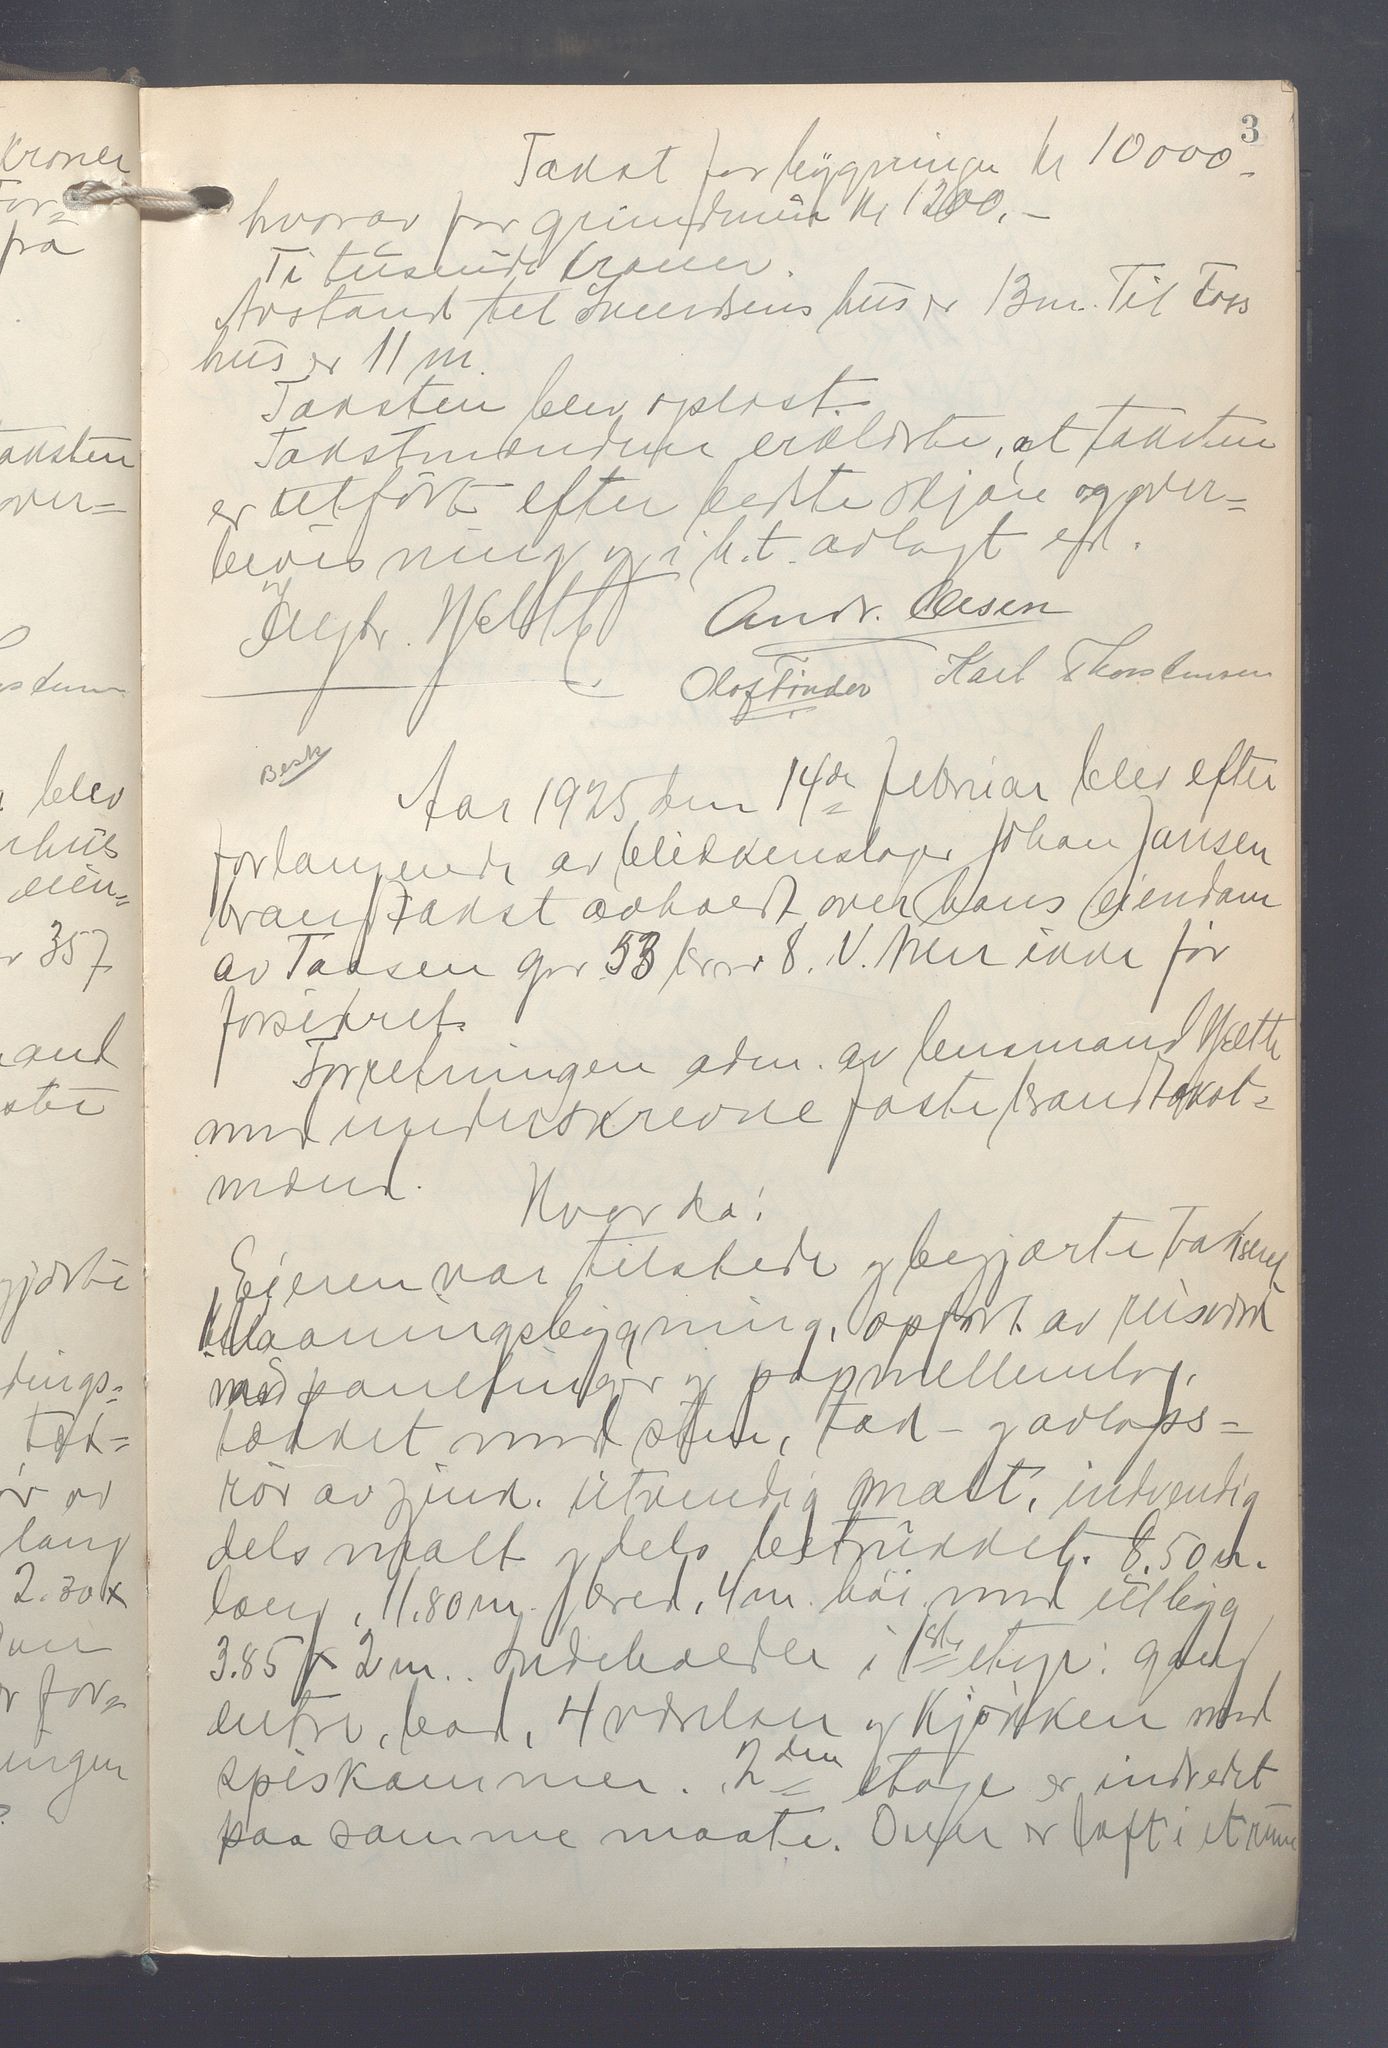 kroner
for-
fra
taksten
over-
blev
hus
eien-
357
and
ste
gjorte
dings-
tæk-
lang
2.30 x
for-
ingen
3
Takst for bygningen kr 10000.-
hvorav for grundmur kr 1200.-
Ti tusinde kroner.
Avstand til Svendsens hus er 13 m. Til Foss
hus er 11 m.
Taksten blev oplæst.
Takstmændene erklærte, at taksten
er utført efter bedste skjøn og over-
bevisning og i h.t. avlagt ed.
Andr. Olsen
Olaf Tønder Karl Thorstensen
Besk
Aar 1925 den 14de februar blev efter
forlangende av blikkenslager Johan Jansen
brandtakst avholdt over hans eiendom
av Taksen gnr 53 brnr 8. V. Men ikke før
forsikret.
Forretningen adm. av lensmand Hjelte
med underskrevne faste brandtakst-
mænd.
Hvorda:
Eieren var tilstede og begjærte takseret
Vaaningsbygning, opført av reisverk
med panelinger og papmellemlag,
tækket med sten, tak- og avløps-
rør av zink. utvendig malt, indvendig
dels malt og dels betrukket. 8.50 m.
lang, 11.80 m. bred, 4 m. høi med utbygg
3.85 x 2 m.. Indeholder i 1ste etage: gang
entre, bad, 4 værelser og kjøkken med
spiskammer. 2den etage er indredet
paa samme maate. Over er loft i et rum